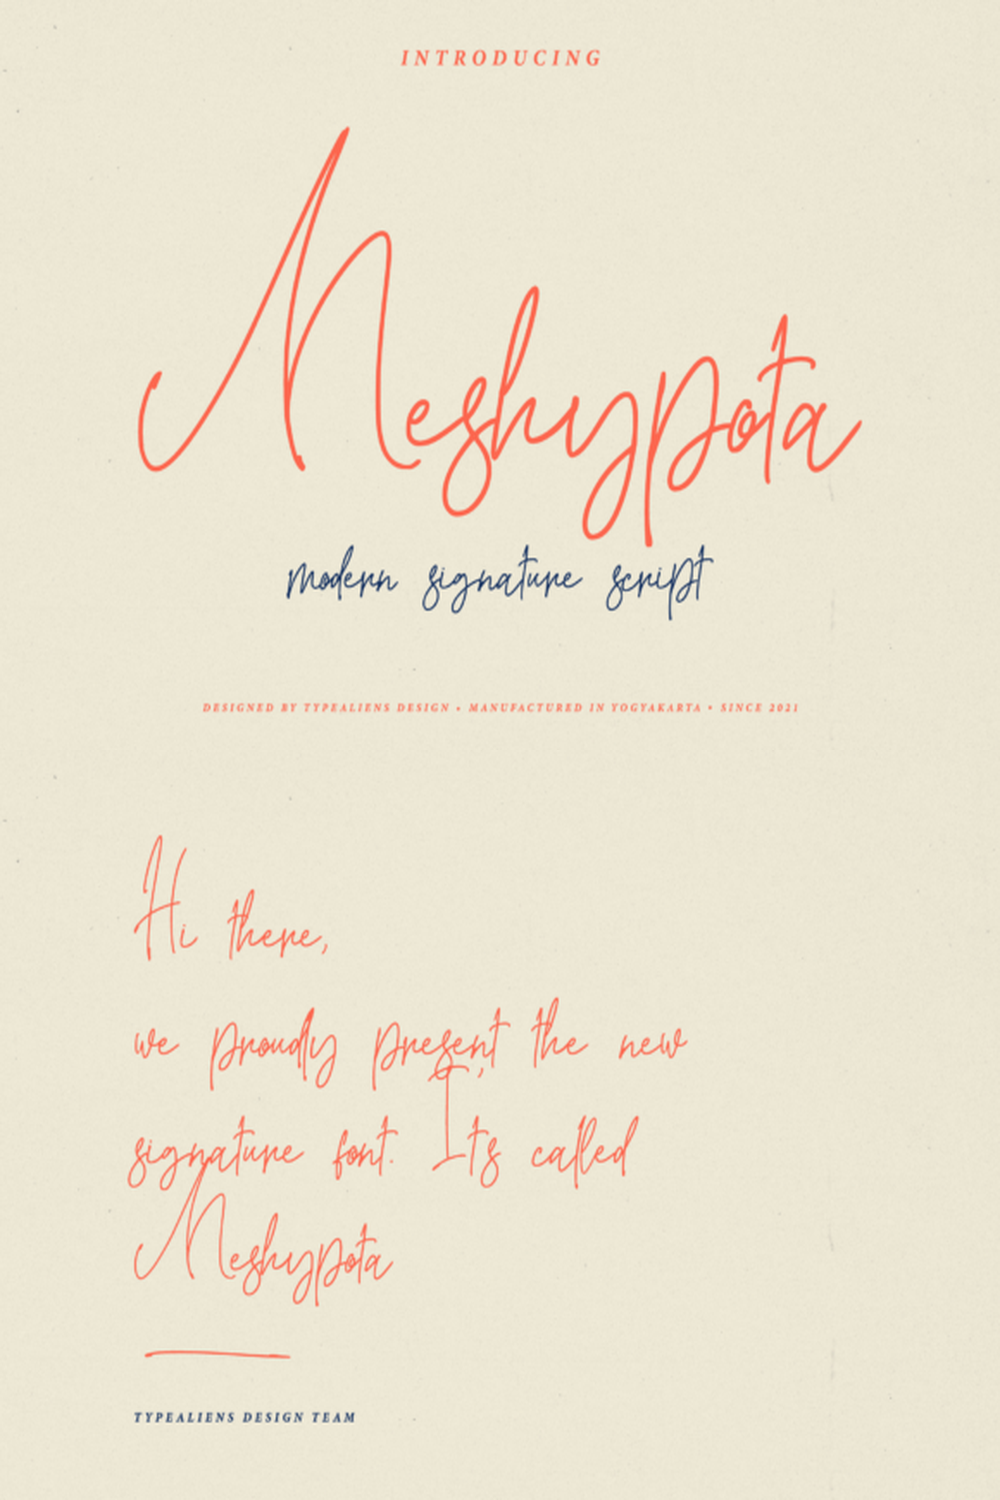 INTRODUCING
Meshypota
modern signature script
DESIGNED BY TYPEALIENS DESIGN • MANUFACTURED IN YOGYAKARTA • SINCE 2021
Hi there,
we proudly present the new
signature font. It's called
Meshypota
TYPEALIENS DESIGN TEAM